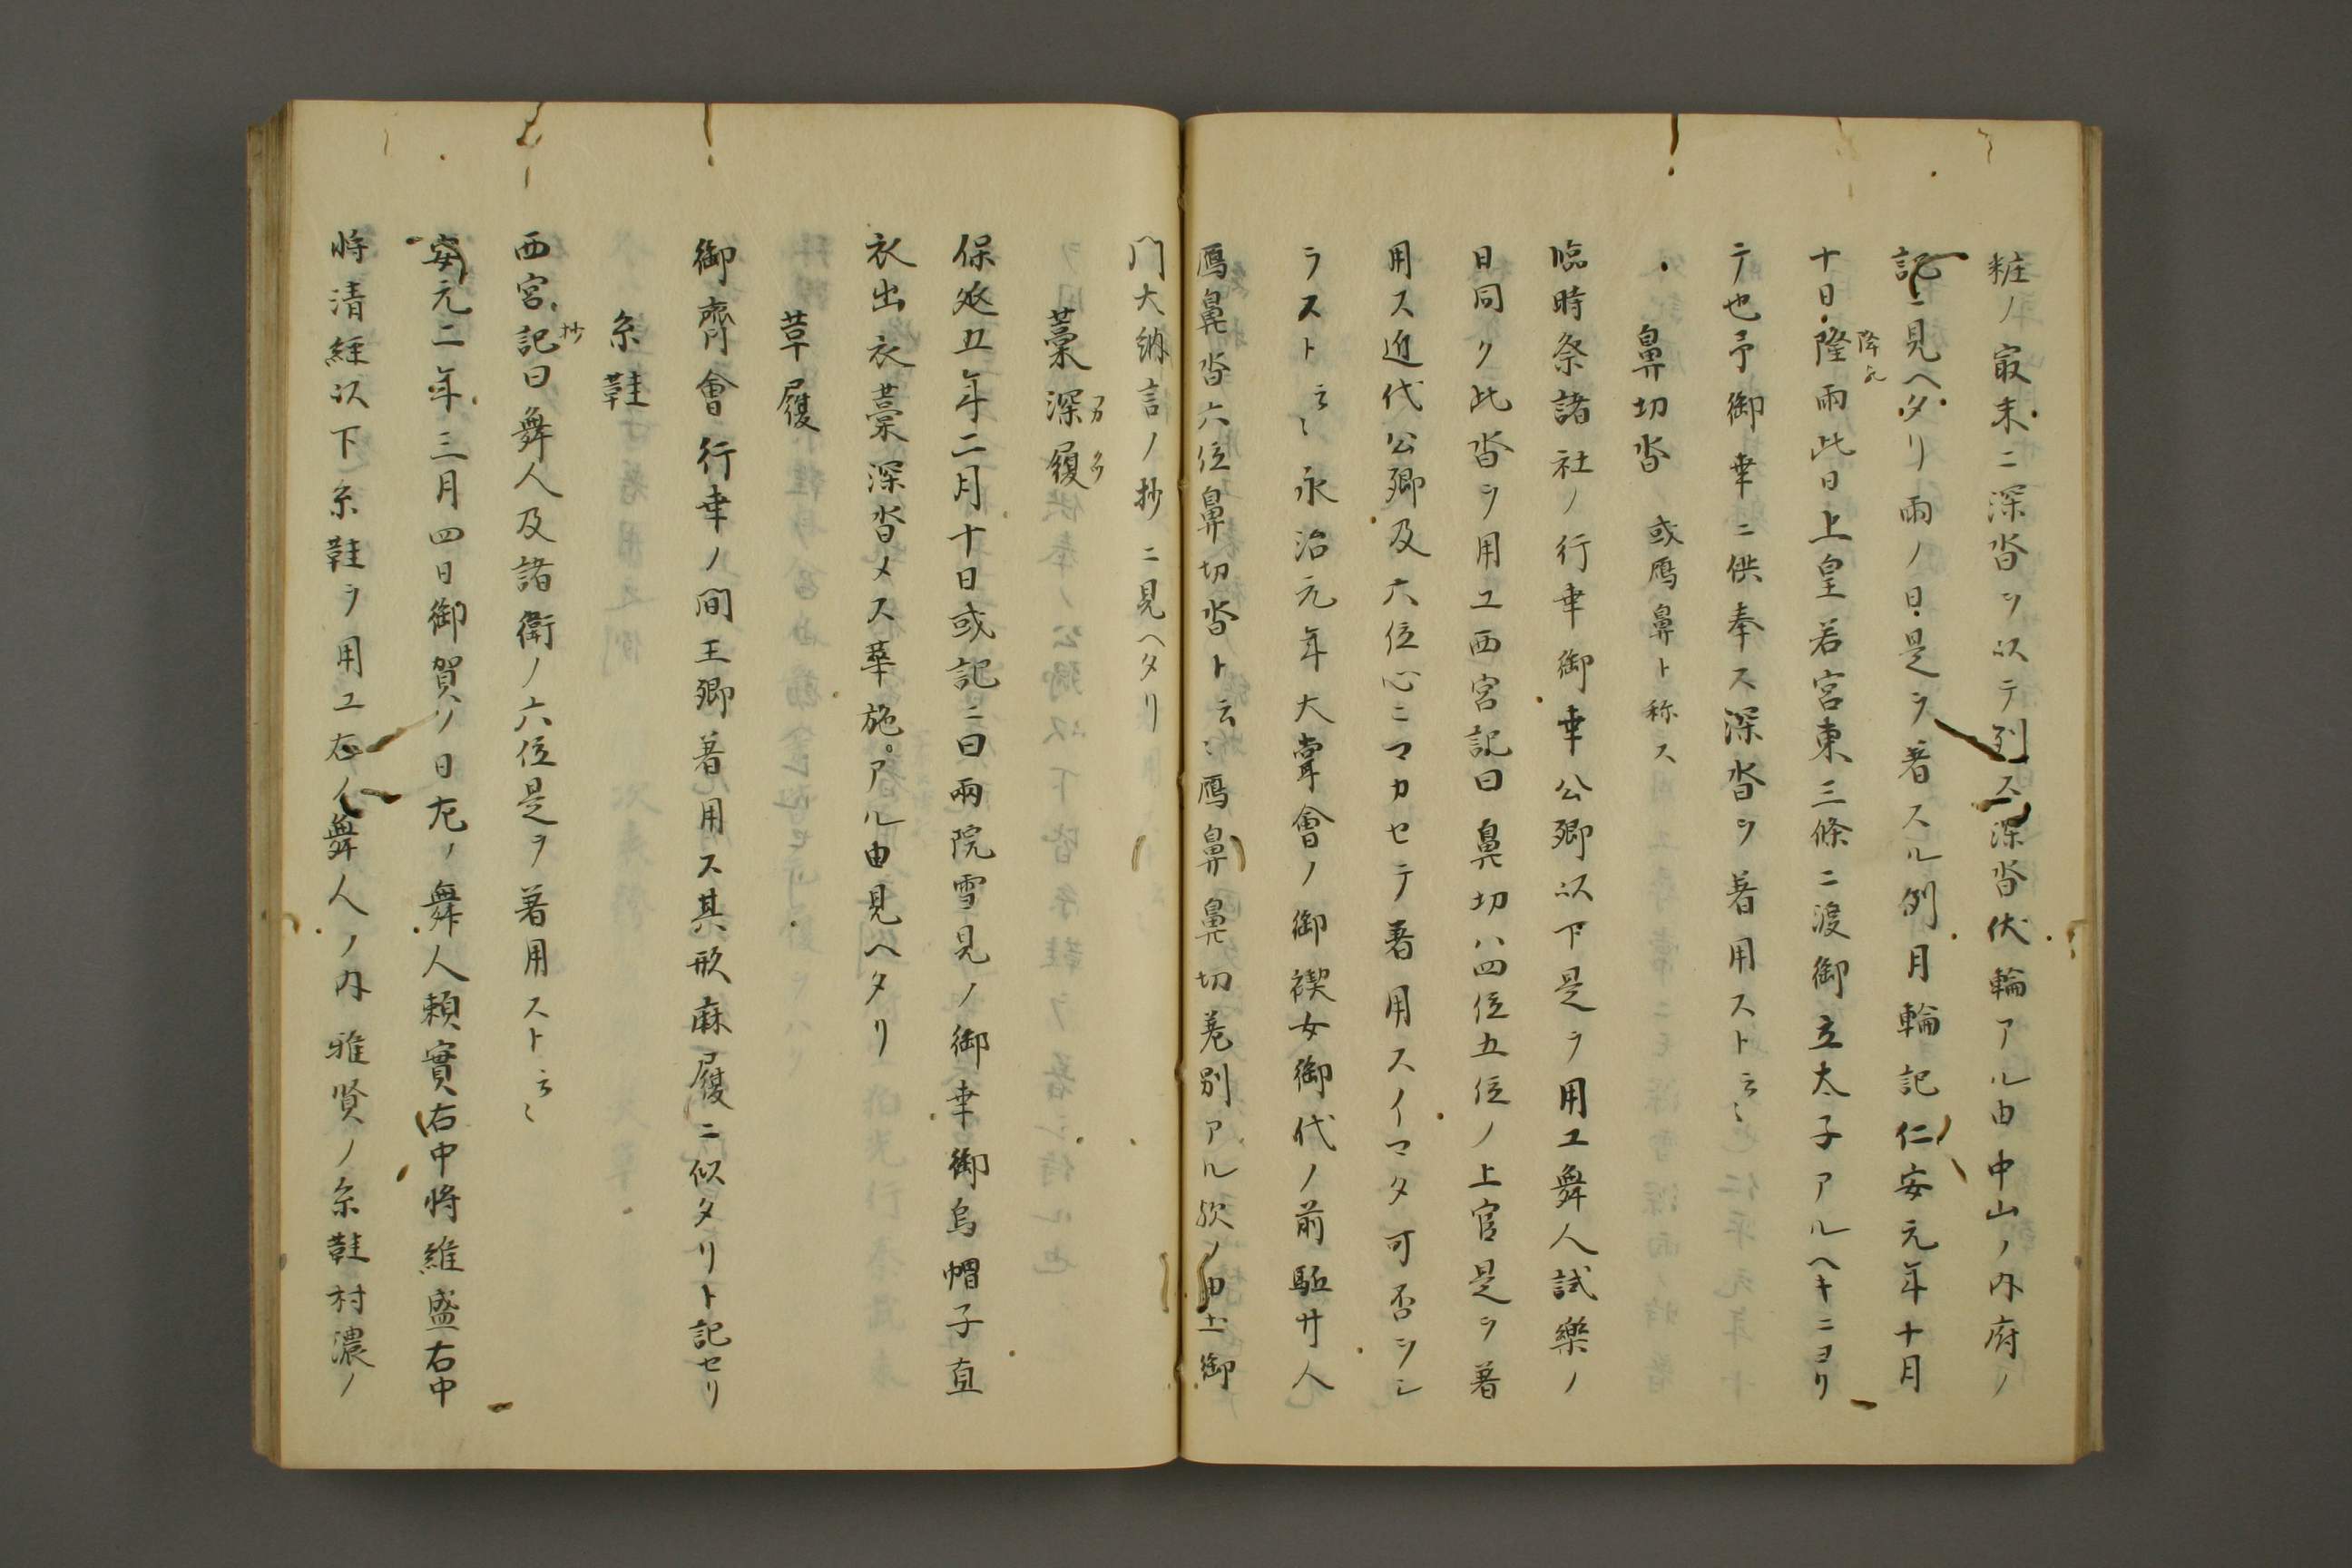 粧ノ㝡末ニ深沓ヲ以テ列ス深沓伏輪アル由中山ノ内府ノ
記ニ見ヘタリ雨ノ日是ヲ著スル例月輪記仁安元年十月
十日隆雨此日上皇若宮東三條ニ渡御立太子アルヘキニヨリ
降
テ也予御幸ニ供奉ス深沓ヲ著用スト云〻
鼻切沓 或鴈鼻ト称ス
臨時祭諸社ノ行幸御幸公卿以下是ヲ用ユ舞人試樂ノ
日同ク此沓ヲ用ユ西宮記曰鼻切ハ四位五位ノ上官是ヲ著
用ス近代公卿及六位心ニマカセテ著用スイマタ可否ヲシ
ラスト云〻永治元年大嘗會ノ御禊女御代ノ前駈廿人
鴈鼻沓六位鼻切沓ト云〻鴈鼻鼻切差別アル歟ノ由土御
門大納言ノ抄ニ見ヘタリ
藁深履
保延五年二月十日或記ニ曰兩院雪見ノ御幸御烏帽子直
衣出衣藁深沓メス華施アル由見ヘタリ
草履
御齊會行幸ノ間王卿著用ス其形麻履ニ似タリト記セリ
糸鞋
西宮記曰舞人及諸衛ノ六位是ヲ著用スト云〻
抄
安元二年三月四日御賀ノ日左ノ舞人頼實右中将維盛右中
将清經以下糸鞋ヲ用ユ右ノ舞人ノ内雅賢ノ糸鞋村濃ノ